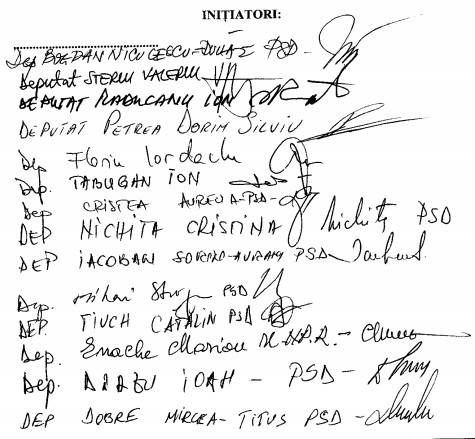 INIȚIATORI:
Dep BOGDAN NICULESCU-DUVĂZ PSD -
Deputat STERIU VALERIU
DEPUTAT RADUCANU ION
DEPUTAT PETREA DORIN SILVIU
Dep Florin Iordache
Dep. TABUGAN ION
Dep CRISTEA AURELIA-PSD-
DEP NICHITA CRISTINA Nichita PSD
DEP IACOBAN PSD-
Dep. Mihai PSD
DEP. TIUCH CATALIN PSD
Dep. Enache Marian
Dep. DIRZU IOAN - PSD-
DEP DOBRE MIRCEA-TITUS PSD-